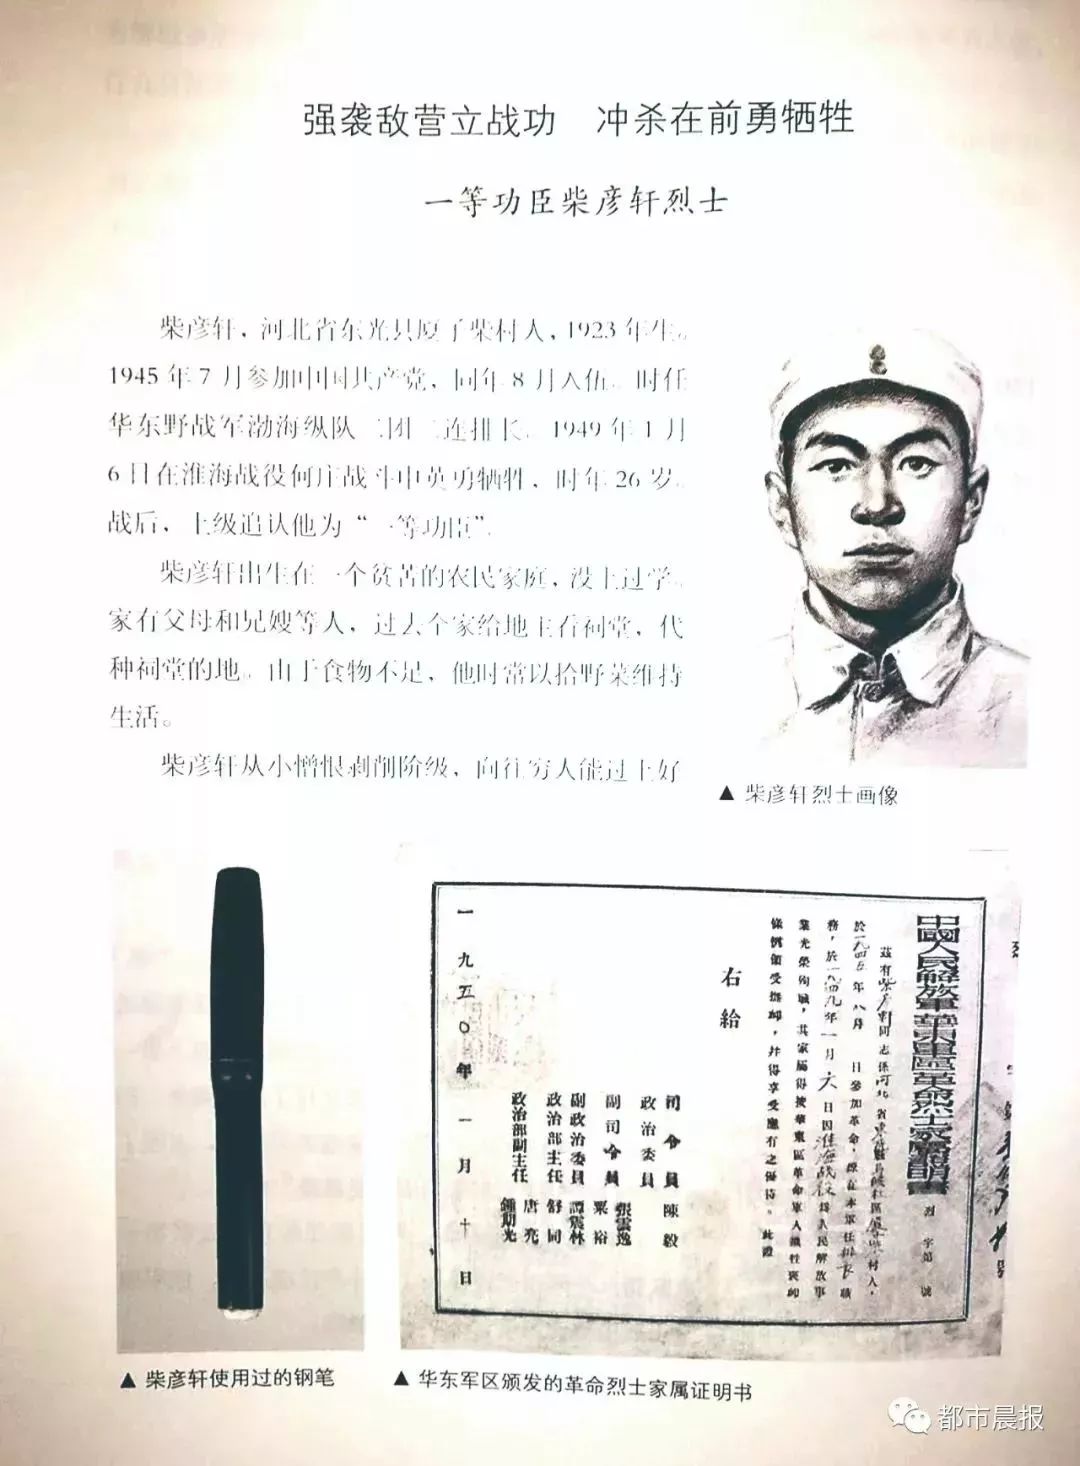 强袭敌营立战功 冲杀在前勇牺牲
一等功臣柴彦轩烈士
柴彦轩，河北省东光县厦子柴村人，1923年生。
1945年7月参加中国共产党，同年8月入伍。时任
华东野战军渤海纵队二团二连排长。1949年1月
6日在淮海战役何庄战斗中英勇牺牲，时年26岁。
战后，上级追认他为“一等功臣”。
柴彦轩出生在一个贫苦的农民家庭，没上过学。
家有父母和兄嫂等人，过去全家给地主看祠堂，代
种祠堂的地。由于食物不足，他时常以拾野菜维持
生活。
柴彦轩从小憎恨剥削阶级，向往穷人能过上好
▲ 柴彦轩烈士画像
中國人民解放軍華東軍區革命烈士家屬證明書
烈 字第 號
茲有柴彦軒同志係河北省東光縣 區 村人，
於一九四五年八月 日參加革命，原在本軍任排長職
務，於一九四九年一月六日因淮海战役為人民解放事
業光榮殉城，其家屬得按華東區革命軍人犧牲褒卹
條例領受撫卹，并得享受應有之優待。此證
右給
司令員 陳毅
政治委員
副司令員 張雲逸
粟裕
副政治委員 譚震林
政治部主任 舒同
政治部副主任 唐亮
鍾期光
一九五〇年一月十日
▲ 柴彦轩使用过的钢笔
▲ 华东军区颁发的革命烈士家属证明书
都市晨报